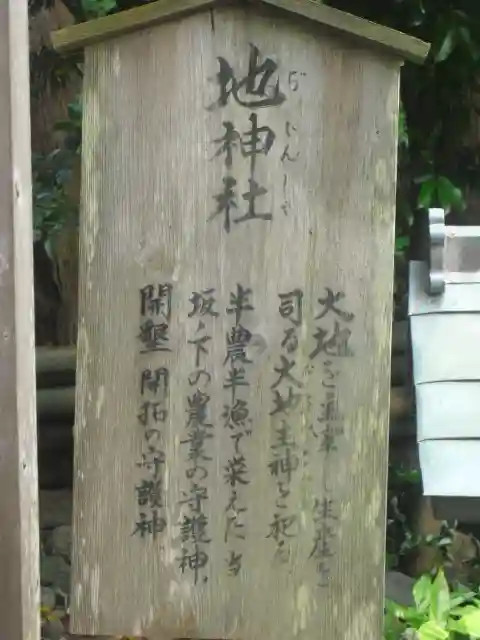 地神社
ぢじんしゃ
大地を直実し生産を
司る大地主神を祀る
半農半漁で栄えた当
坂ノ下の農業の守護神、
開墾 開拓の守護神